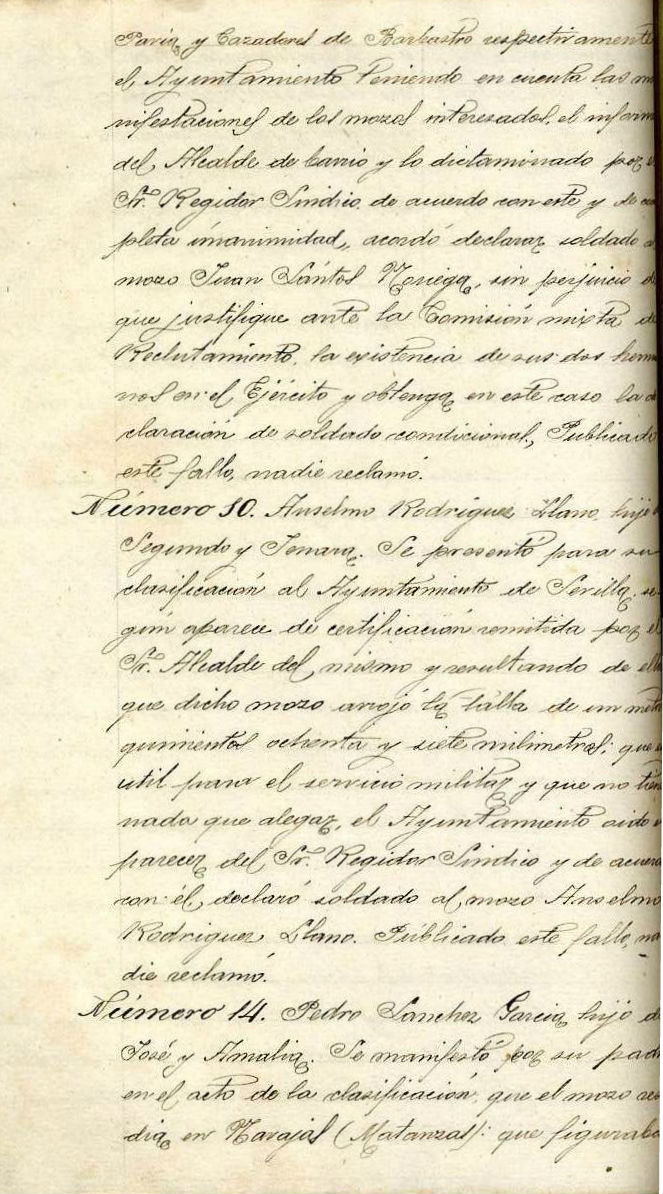 Pavia y Cazadores de Barbastro respectivamente
el Ayuntamiento teniendo en cuenta las m
nifestaciones de los mozos interesados, el inform
del Alcalde de barrio y lo dictaminado por
Sr. Regidor Sindico, de acuerdo con este y de co
pleta unanimidad, acordó declarar soldado a
mozo Juan Santos Noriega, sin perjuicio d
que justifique ante la Comisión mixta de
Reclutamiento, la existencia de sus dos herma
nos en el Ejército y obtenga en este caso la d
claración de soldado condicional, Publicado
este fallo, nadie reclamó.
Número 10. Anselmo Rodriguez Llano, hijo
Segundo y Jenara. Se presentó para su
clasificación al Ayuntamiento de Sevilla, se
gún aparece de certificación remitida por el
Sr. Alcalde del mismo y resultando de ell
que dicho mozo arrojó la talla de un metr
quinientos ochenta y siete milimetros; que e
util para el servicio militar y que no tien
nada que alegar, el Ayuntamiento oido
parecer del Sr. Regidor Sindico y de acuerd
con él, declaró soldado al mozo Anselmo
Rodriguez Llano. Públicado este fallo, na
die reclamó.
Número 14. Pedro Sanchez Garcia, hijo d
José y Amalia. Se manifestó por su padr
en el acto de la clasificación, que el mozo resi
dia en Navajas (Matanzas): que figuraba